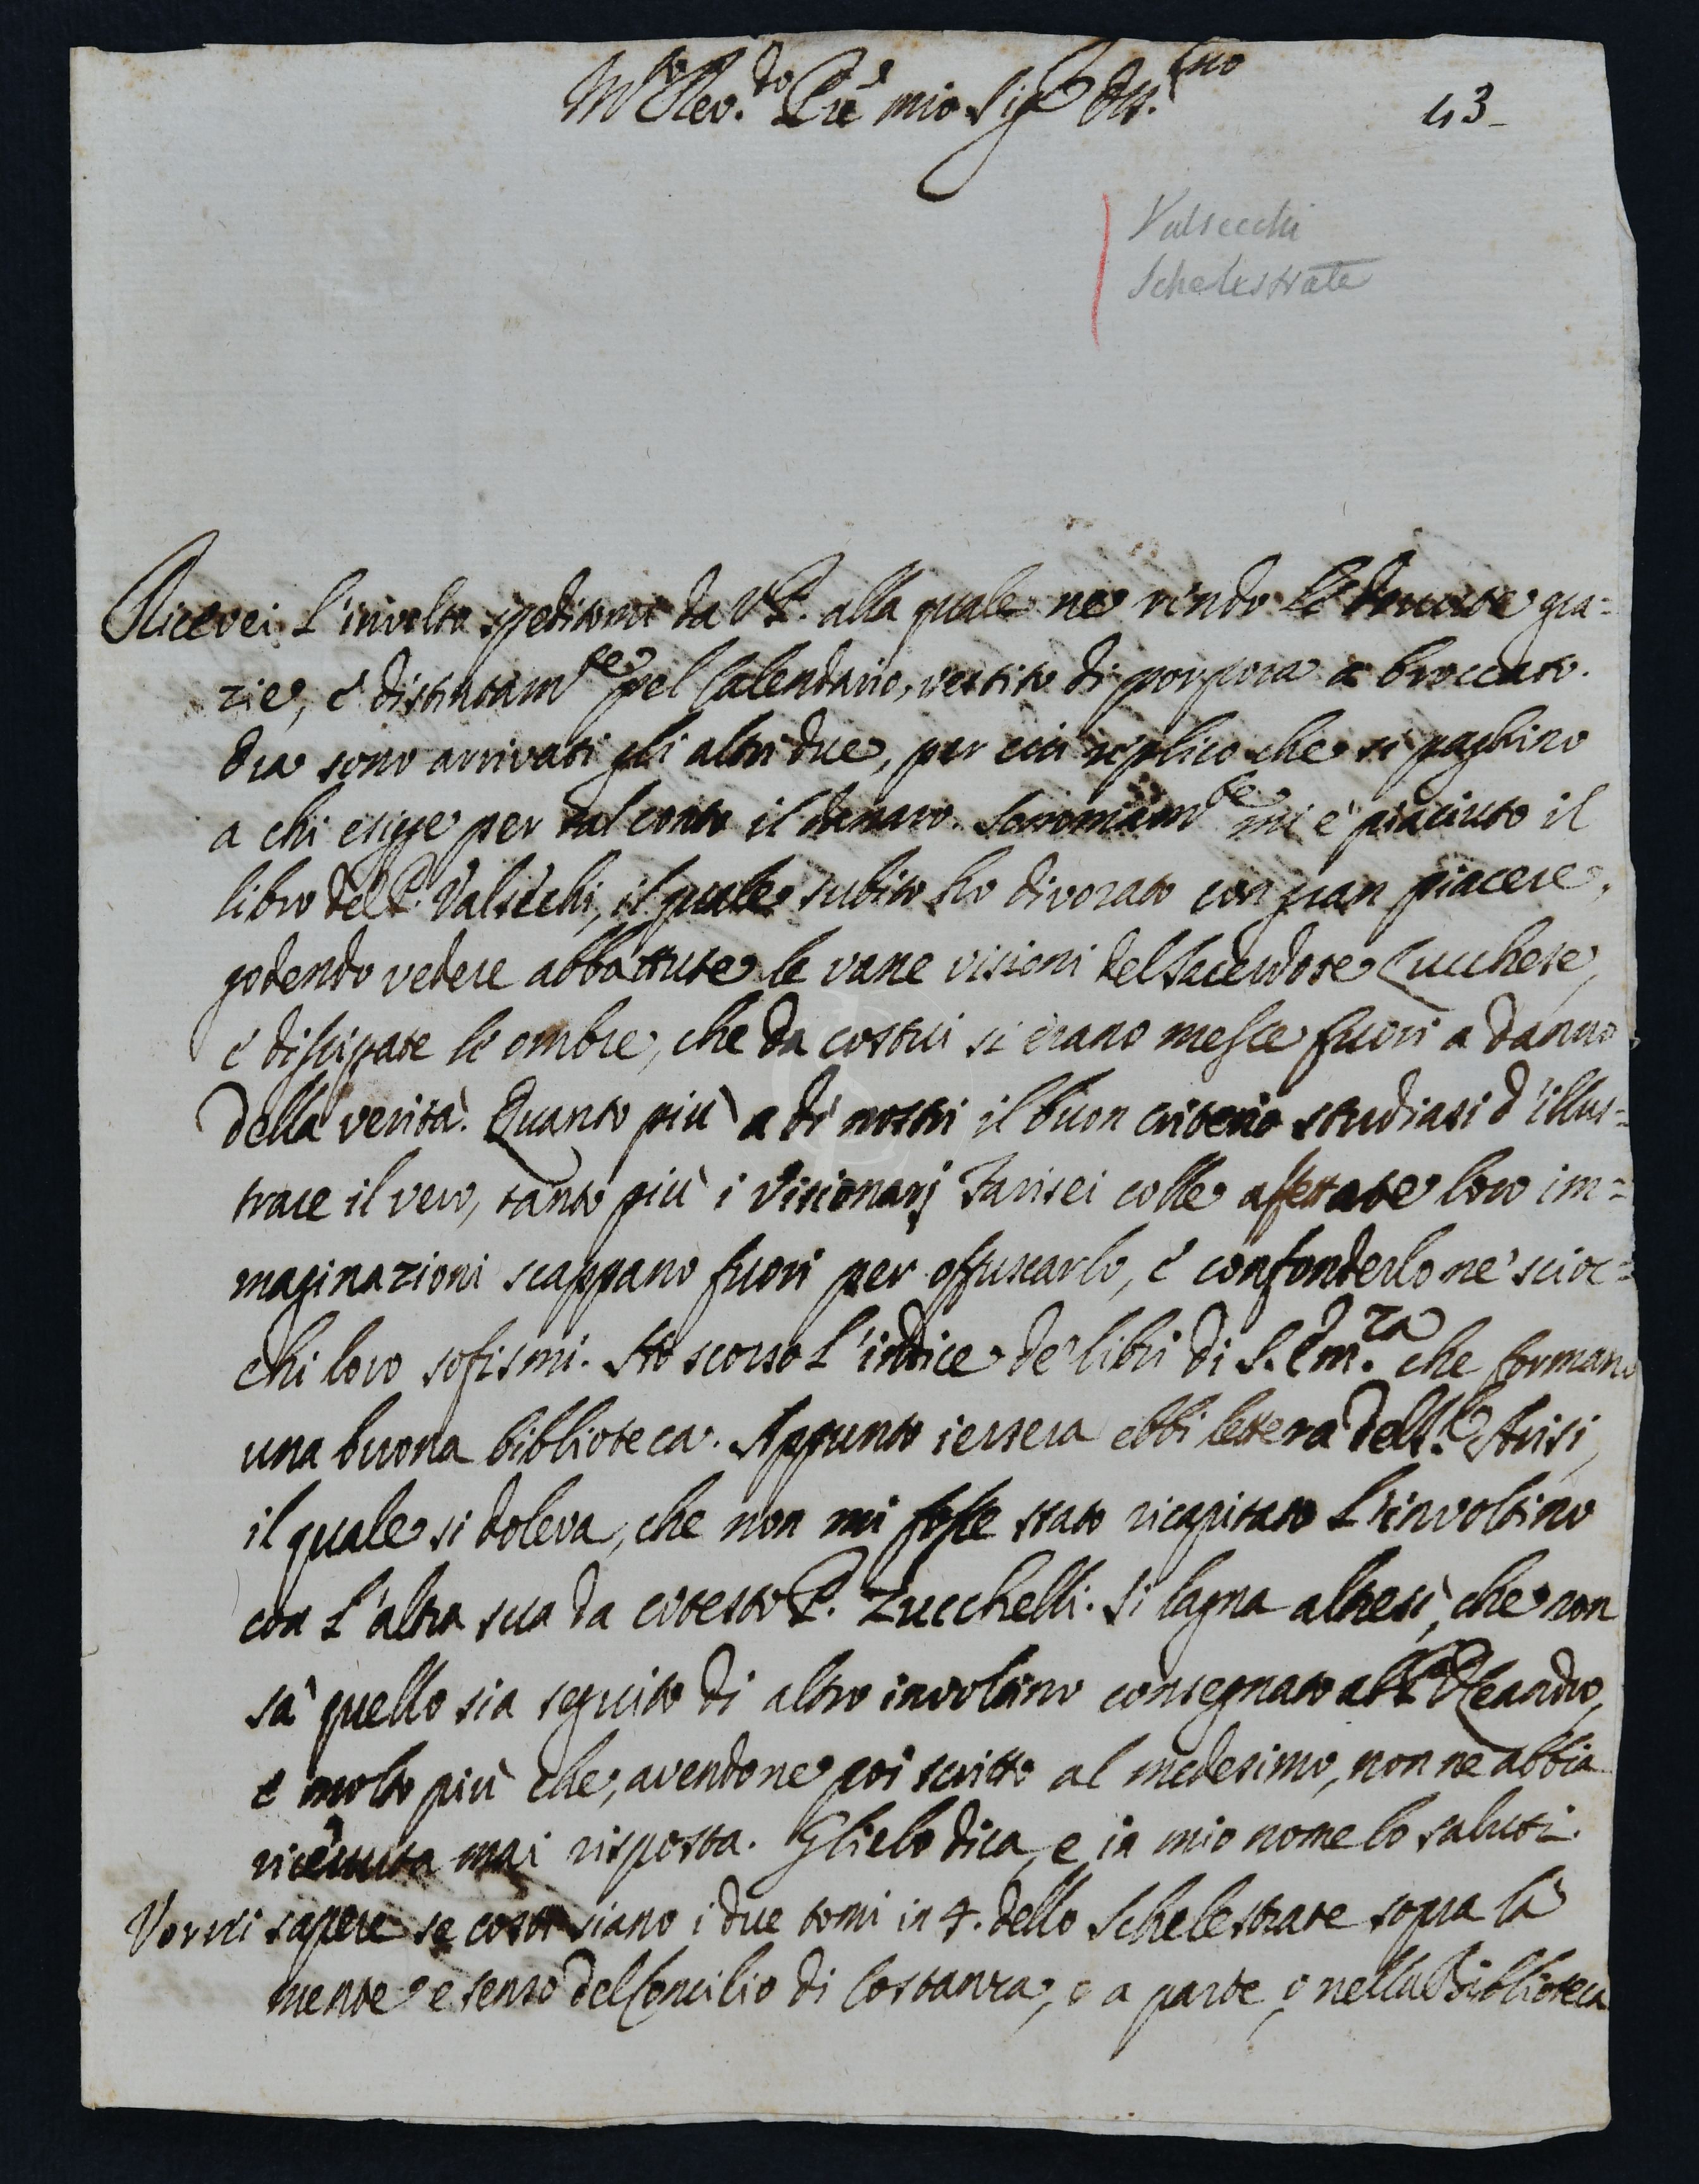 M.to Rev.do P.re mio Sig.re Oss.mo
43
Valsecchi
Schelestrate
Ricevei l'involto speditomi da V.P. alla quale ne rendo le dovute gra=
zie, e distintam.te pel Calendario, vestito di porpora a broccato.
Ora sono arrivati gli altri due, per cui replico che si paghino
a chi esigge per tal conto il danaro. Sommam.te mi è piaciuto il
libro del P. Valsechi, il quale subito ho divorato con gran piacere,
godendo vedere abbattute le vane visioni del Sacerdote Lucchese,
e dissipate le ombre, che da costui si erano messe fuori a danno
della verità. Quanto più a dì nostri il buon criterio studiasi d'illus=
trare il vero, tanto più i visionarj Farisei colle affettate loro im=
maginazioni scappano fuori per offuscarlo, e confonderlo ne' scioc=
chi loro sofismi. Ho scorso l'indice de' libri di S. Em.za che formano
una buona biblioteca. Appunto iersera ebbi lettera del S.r Arisi,
il quale si doleva, che non mi fosse stato ricapitato l'involtino
con l'altra sua da cotesto P. Zucchelli. Si lagna altresì, che non
sà quello sia seguito di altro involtino consegnato al P. Leandro,
e molto più che, avendone poi scritto al medesimo, non ne abbia
ricevuta mai risposta. Glielo dica, e in mio nome lo saluti.
Vorrei sapere se costì siano i due tomi in 4. dello Schelestrate sopra la
mente e senso del Concilio di Costanza, o a parte, o nella Biblioteca